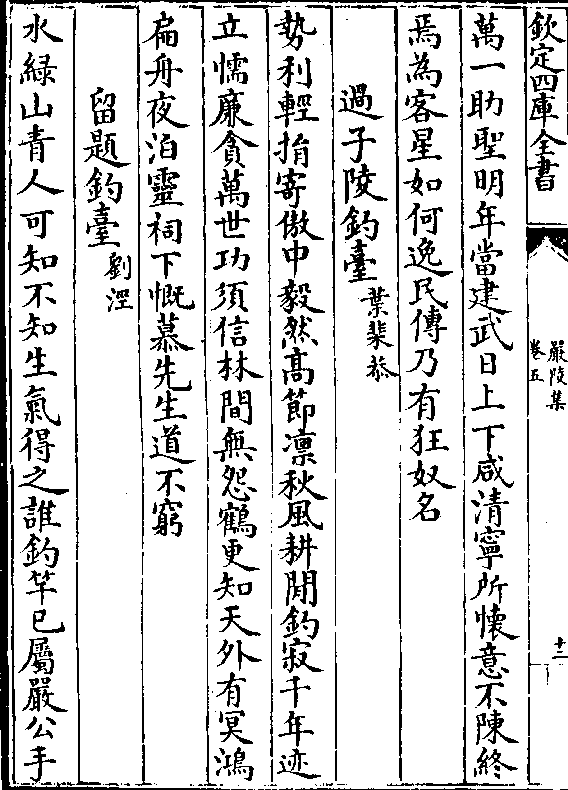 欽定四庫全書
嚴陵集
卷五
十二
萬一助聖明年當建武日上下咸清寧所懷意不陳終
焉為客星如何逸民傳乃有狂奴名
過子陵釣臺 葉棐恭
勢利輕捐寄傲中毅然高節凛秋風耕閒釣寂千年迹
立懦廉貪萬世功須信林間無怨鶴更知天外有冥鴻
扁舟夜泊靈祠下慨慕先生道不窮
留題釣臺 劉涇
水緑山青人可知不知生氣得之誰釣竿已屬嚴公手